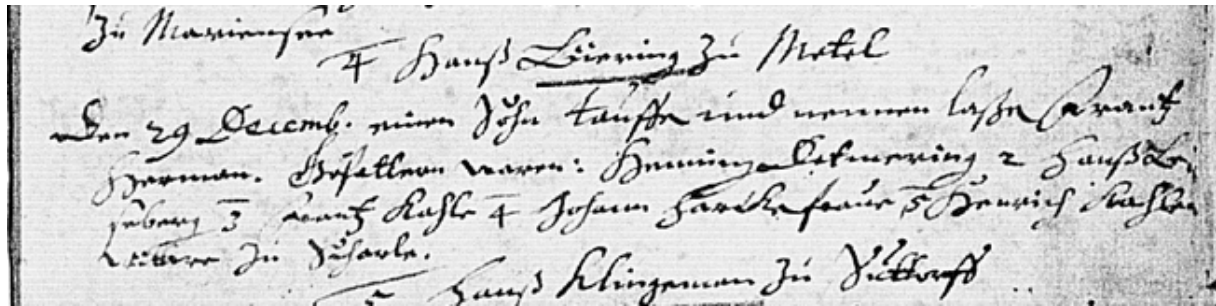 Zu Mariensee
4 Hanß Giering Zu Metel
Den 29 Decemb. einen Sohn tauffen und nennen laßen Frantz
Herman. Gefattern waren: Henning Detmering 2 Hanß
3 Frantz Kahle 4 Johann Harcke fraue 5 Henrich Kahlen
Zu Scharle.
5 Hanß Klingeman Zu Suttorff